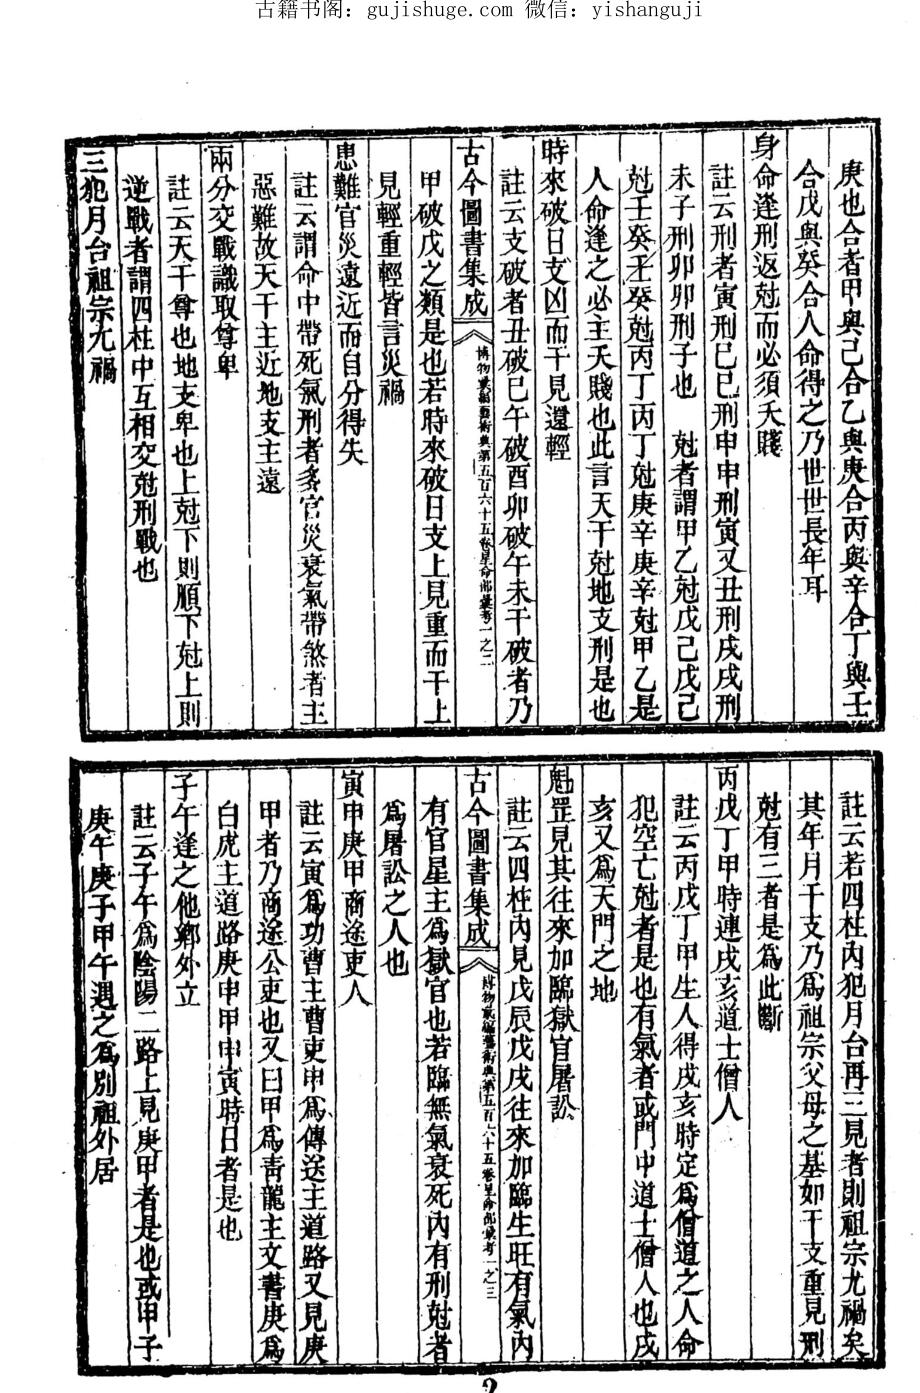 古籍书阁：gujishuge.com 微信：yishanguji
庚也合者甲與己合乙與庚合丙與辛合丁與壬
合戊與癸合人命得之乃世世長年耳
身命逢刑返尅而必須夭賤
註云刑者寅刑巳巳刑申申刑寅又丑刑戌戌刑
未子刑卯卯刑子也 尅者謂甲乙尅戊己戊己
尅壬癸壬癸尅丙丁丙丁尅庚辛庚辛尅甲乙是
人命逢之必主夭賤也此言天干尅地支刑是也
時來破日支凶而干見還輕
註云支破者丑破巳午破酉卯破午未干破者乃
古今圖書集成
博物彙編藝術典第五百六十五卷星命部彙考一之二
甲破戊之類是也若時來破日支上見重而干上
見輕重輕皆言災禍
患難官災遠近而自分得失
註云謂命中帶死氣刑者多官災衰氣帶煞者主
惡難故天干主近地支主遠
兩分交戰識取尊卑
註云天干尊也地支卑也上尅下則順下尅上則
逆戰者謂四柱中互相交尅刑戰也
三犯月台祖宗尤禍
註云若四柱內犯月台再三見者則祖宗尤禍矣
其年月干支乃為祖宗父母之基如干支重見刑
尅有三者是為此斷
丙戊丁甲時連戌亥道士僧人
註云丙戊丁甲生人得戌亥時定為僧道之人命
犯空亡尅者是也有氣者或門中道士僧人也戌
亥又為天門之地
魁罡見其往來加臨獄官屠訟
註云四柱內見戊辰戊戌往來加臨生旺有氣內
古今圖書集成
博物彙編藝術典第五百六十五卷星命部彙考一之三
有官星主為獄官也若臨無氣衰死內有刑尅者
為屠訟之人也
寅申庚甲商途吏人
註云寅為功曹主曹吏申為傳送主道路又見庚
甲者乃商途公吏也又曰甲為靑龍主文書庚為
白虎主道路庚申甲申寅時日者是也
子午逢之他鄉外立
註云子午為陰陽二路上見庚甲者是也或甲子
庚午庚子甲午遇之為別祖外居
2